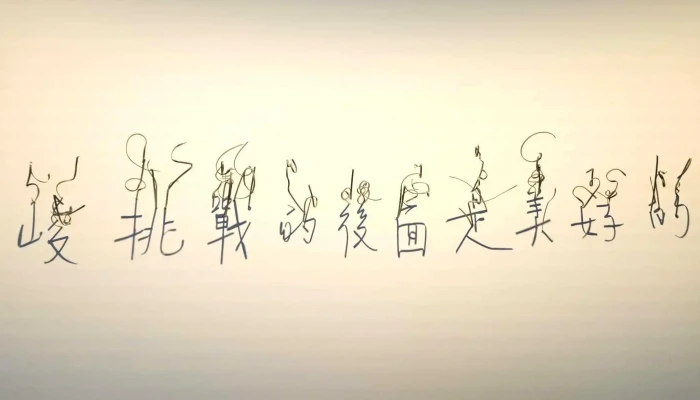 峻挑戰的後面是美好的